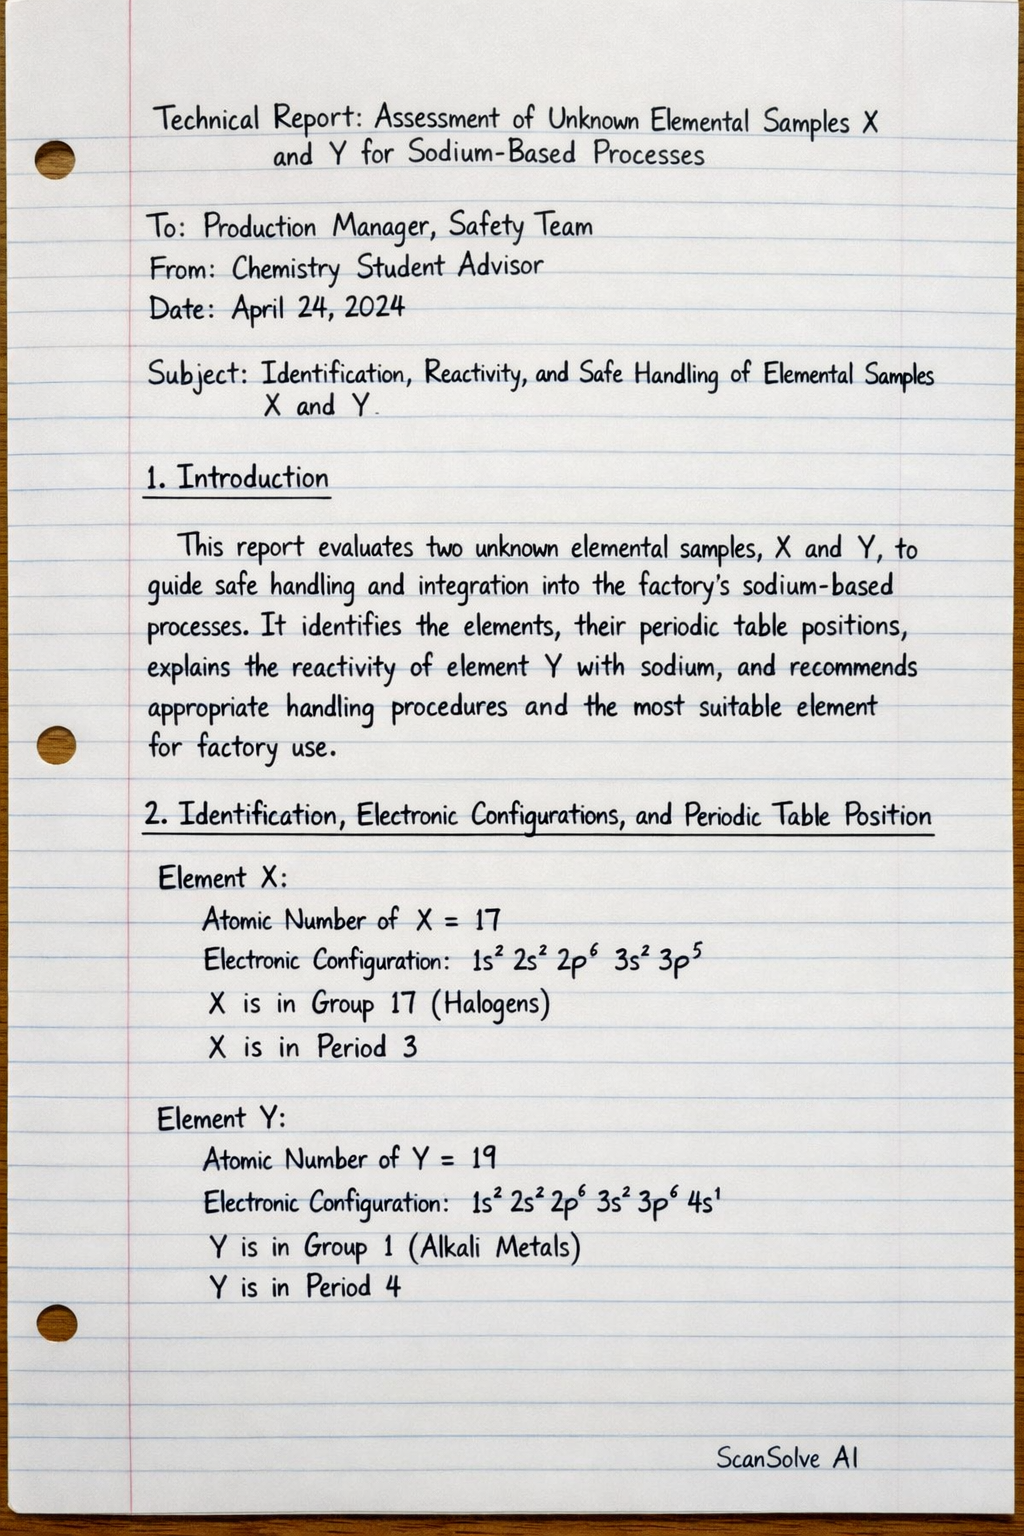 Technical Report: Assessment of Unknown Elemental Samples X
and Y for Sodium-Based Processes
To: Production Manager, Safety Team
From: Chemistry Student Advisor
Date: April 24, 2024
Subject: Identification, Reactivity, and Safe Handling of Elemental Samples
X and Y.
1. Introduction
This report evaluates two unknown elemental samples, X and Y, to
guide safe handling and integration into the factory's sodium-based
processes. It identifies the elements, their periodic table positions,
explains the reactivity of element Y with sodium, and recommends
appropriate handling procedures and the most suitable element
for factory use.
2. Identification, Electronic Configurations, and Periodic Table Position
Element X:
Atomic Number of X = 17
Electronic Configuration: 1s² 2s² 2p⁶ 3s² 3p⁵
X is in Group 17 (Halogens)
X is in Period 3
Element Y:
Atomic Number of Y = 19
Electronic Configuration: 1s² 2s² 2p⁶ 3s² 3p⁶ 4s¹
Y is in Group 1 (Alkali Metals)
Y is in Period 4
ScanSolve AI